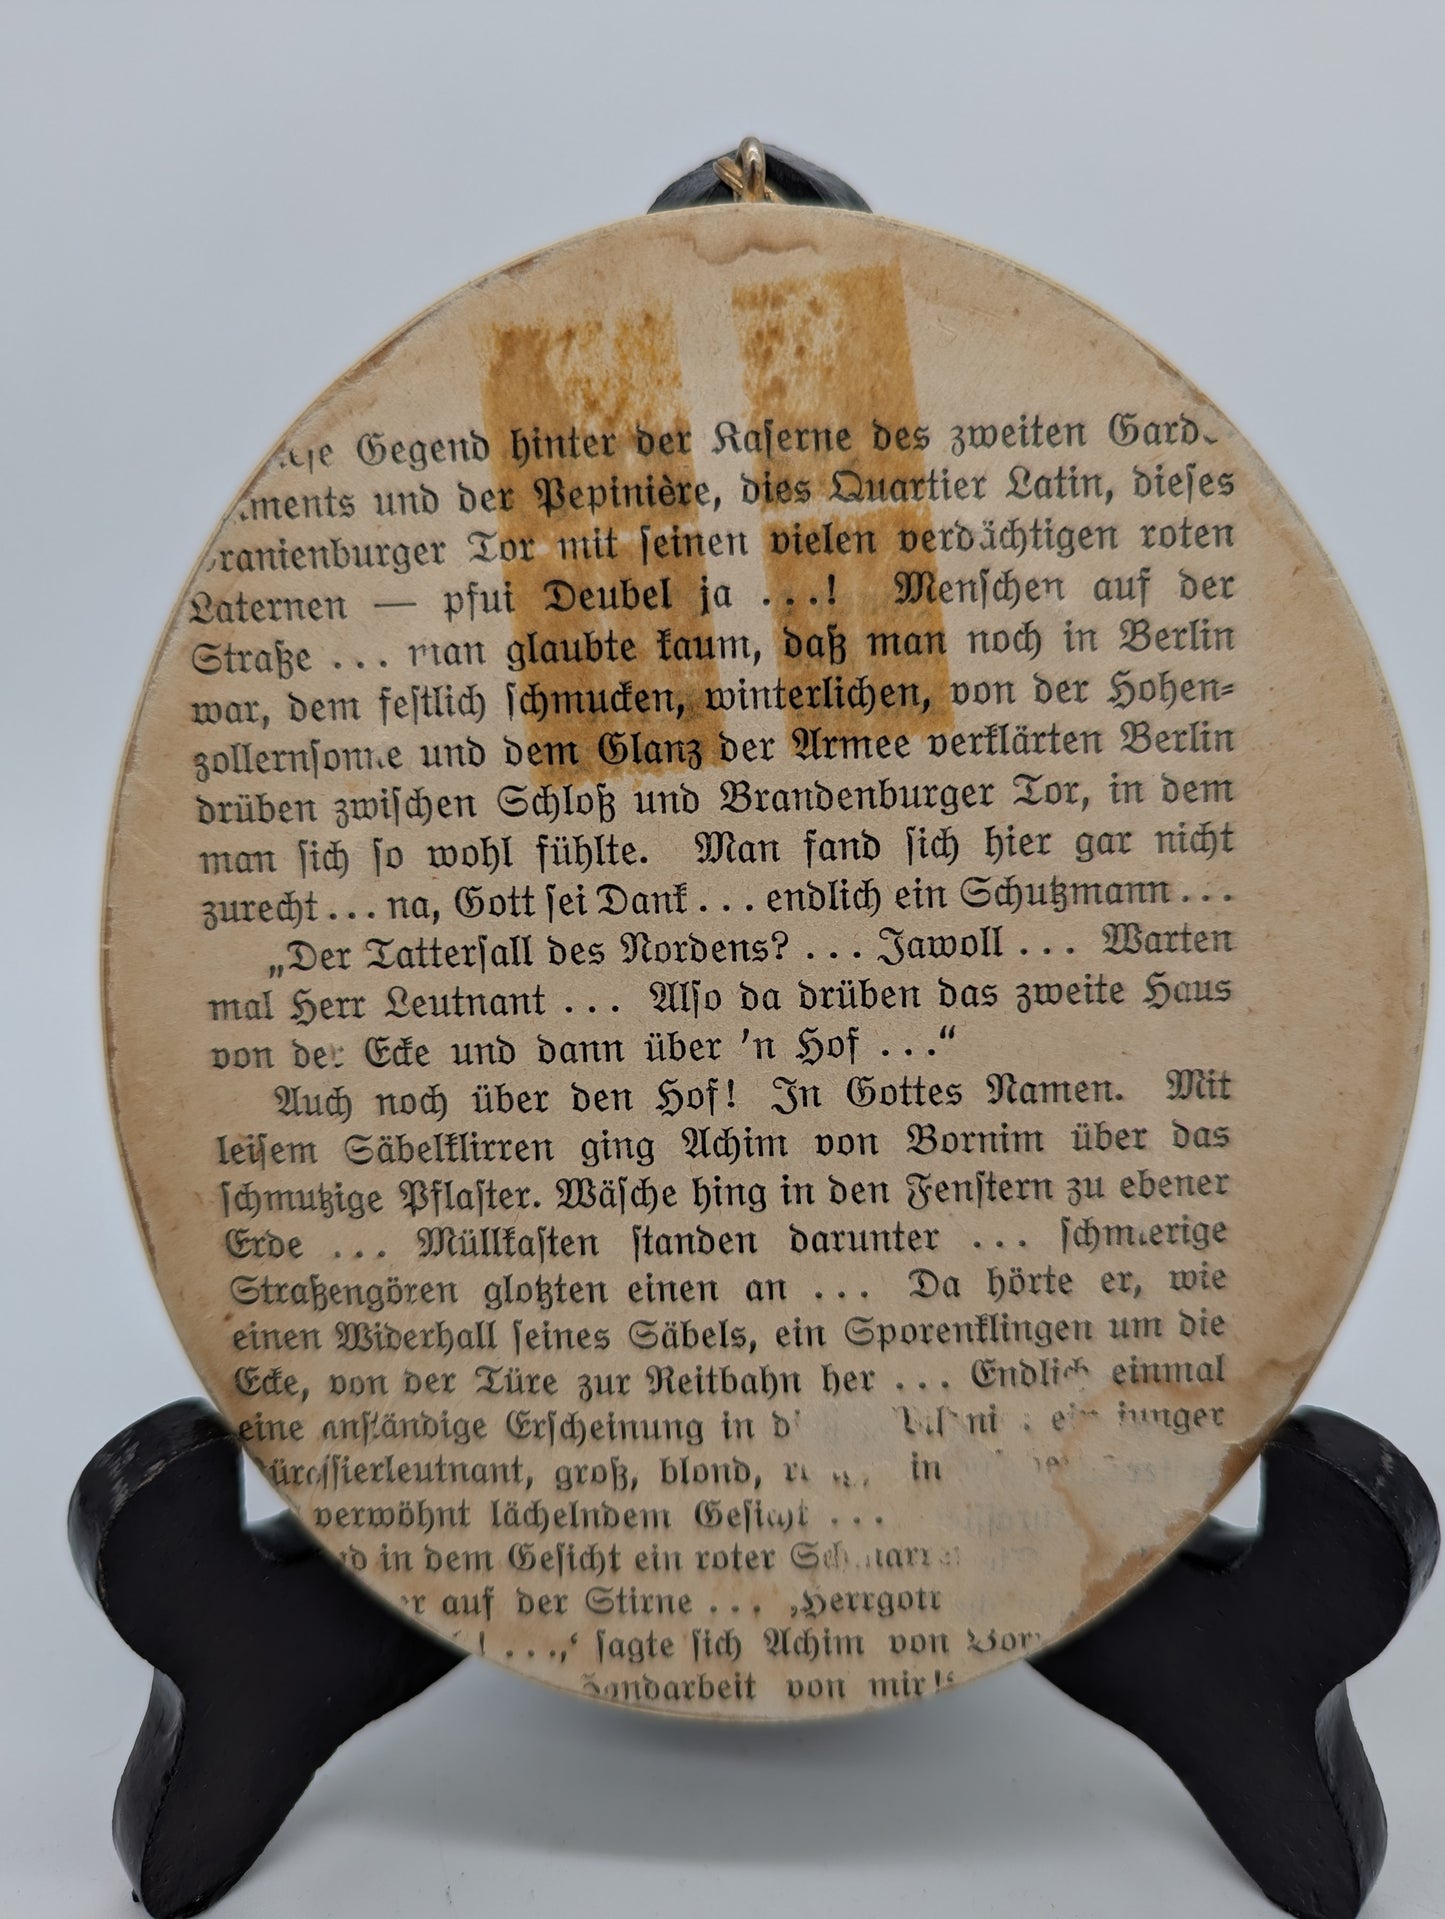 Gegend hinter der Kaserne des zweiten
und der Pepinière, dies Quartier Latin, dieses
Tor mit seinen vielen verdächtigen roten
Laternen — pfui Deubel ja ...! Menschen auf der
Straße ... man glaubte kaum, daß man noch in Berlin
war, dem festlich schmucken, winterlichen, von der Hohen-
zollernsonne und dem Glanz der Armee verklärten Berlin
drüben zwischen Schloß und Brandenburger Tor, in dem
man sich so wohl fühlte. Man fand sich hier gar nicht
zurecht ... na, Gott sei Dank ... endlich ein Schutzmann ...
„Der Tattersall des Nordens? ... Jawoll ... Warten
mal Herr Leutnant ... Also da drüben das zweite Haus
von der Ecke und dann über 'n Hof ...“
Auch noch über den Hof! In Gottes Namen. Mit
leisem Säbelklirren ging Achim von Bornim über das
schmutzige Pflaster. Wäsche hing in den Fenstern zu ebener
Erde ... Müllkasten standen darunter ... schmierige
Straßengören glotzten einen an ... Da hörte er, wie
einen Widerhall seines Säbels, ein Sporenklingen um die
Ecke, von der Türe zur Reitbahn her ... Endlich einmal
eine anständige Erscheinung in ein junger
groß, blond, in
verwöhnt lächelndem Gesicht ...
in dem Gesicht ein roter
auf der Stirne ... ‚Herrgott
! ...,‘ sagte sich Achim von
Handarbeit von mir!‘